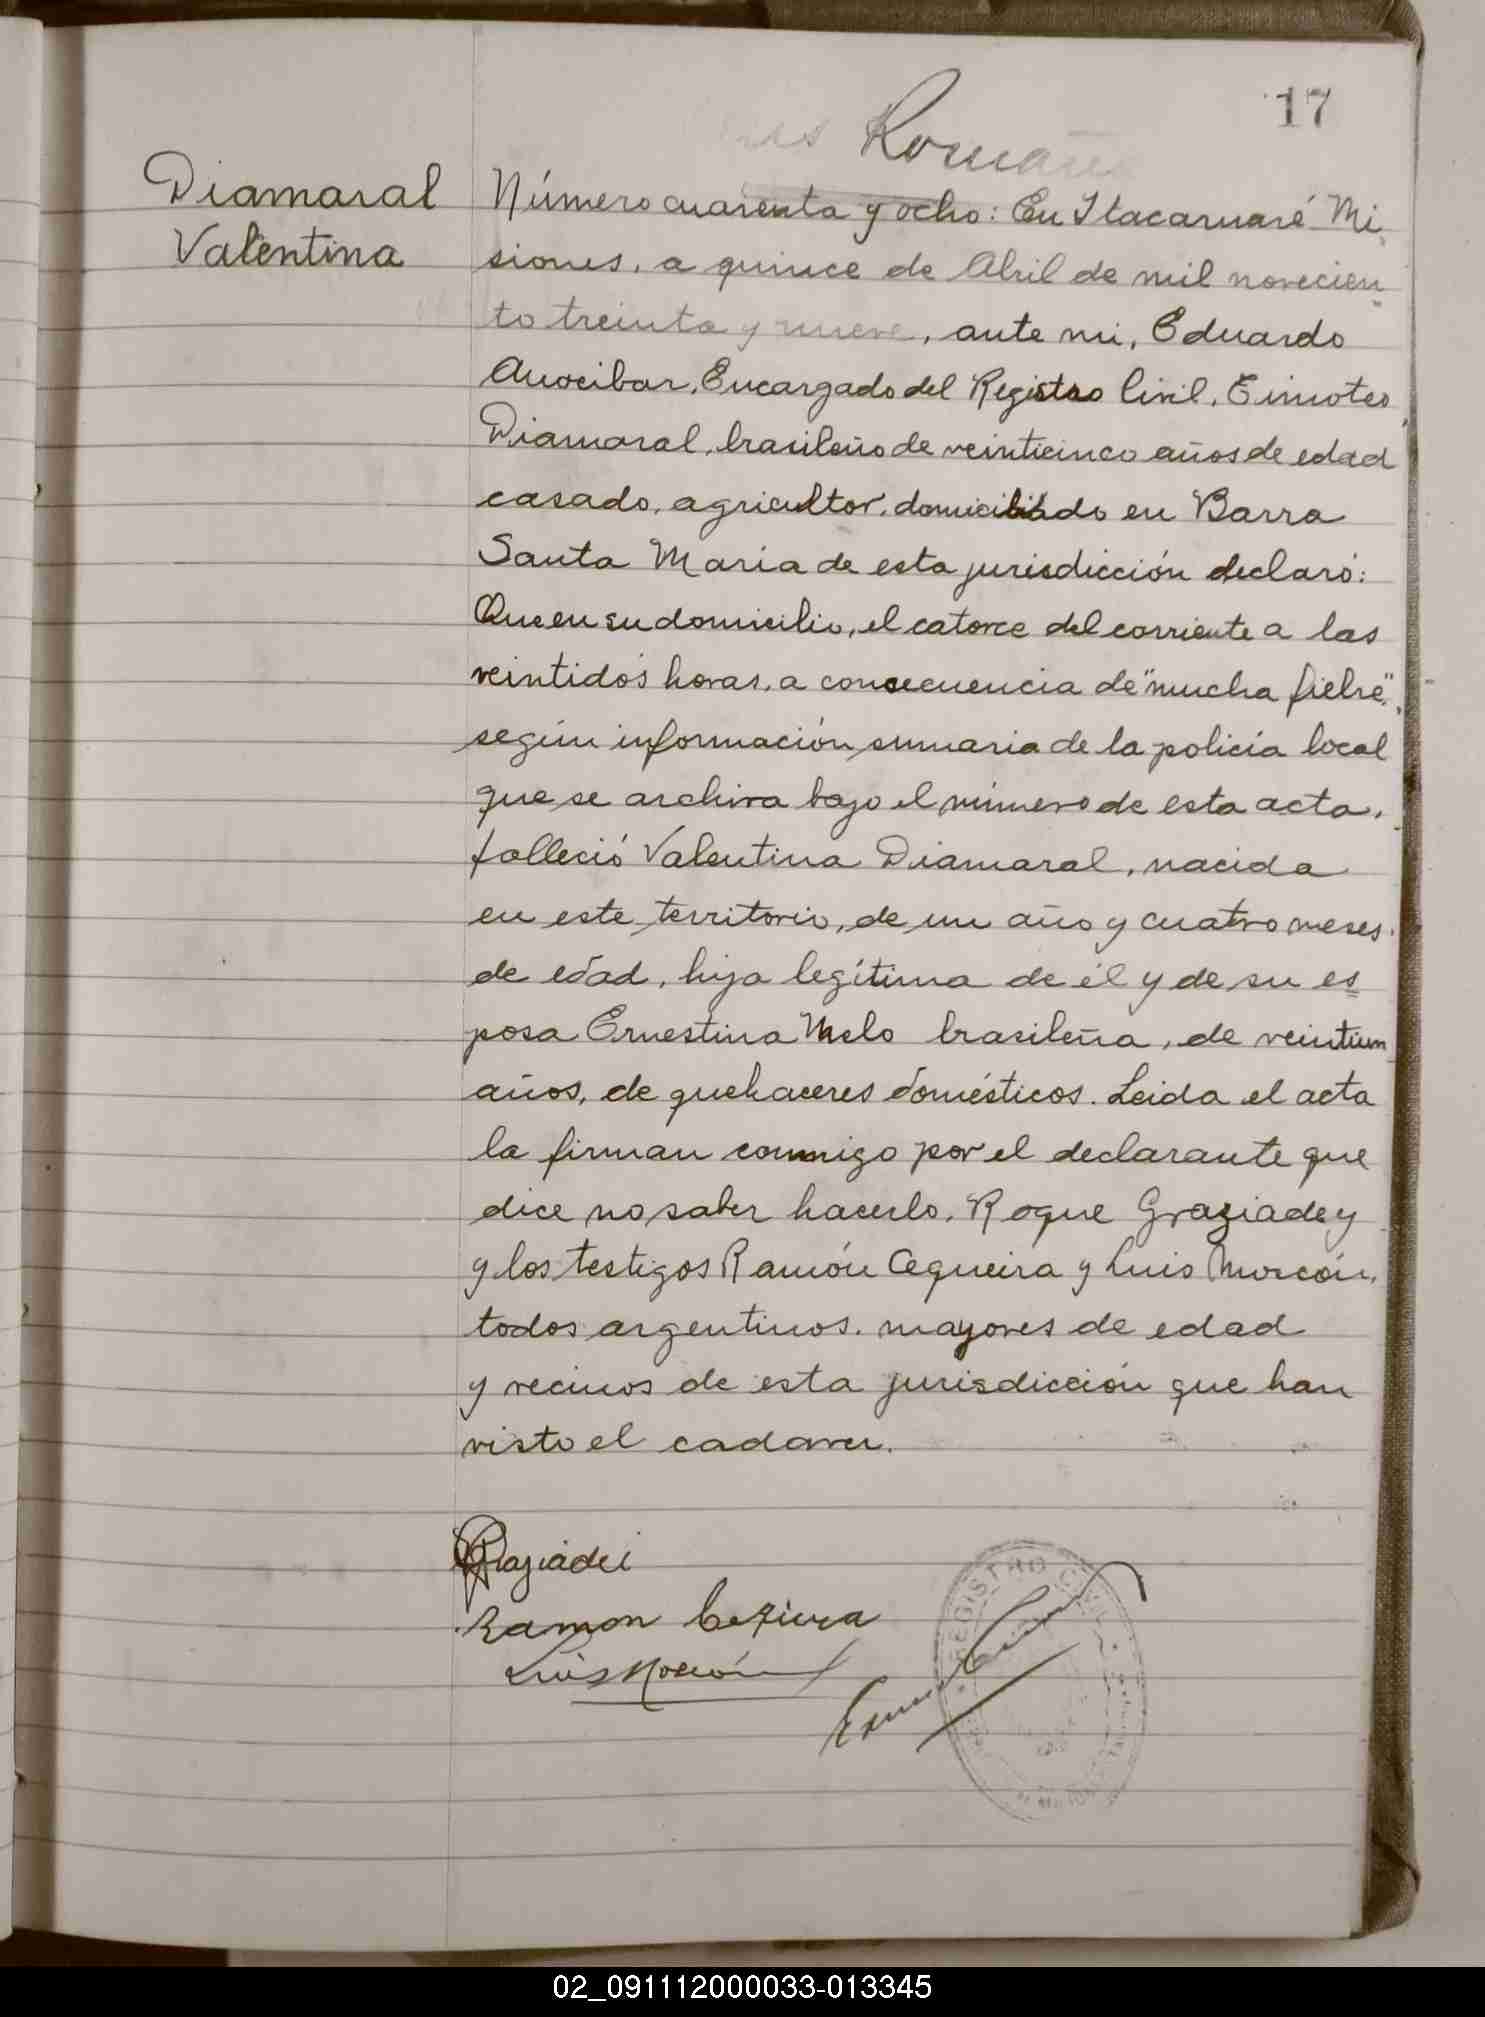 17
Diamaral
Valentina
Número cuarenta y ocho: En Itacaruaré Mi
siones, a quince de Abril de mil novecien
to treinta y nueve, ante mi, Eduardo
Anocibar, Encargado del Registro Civil, Timoteo
Diamaral, brasileño de veinticinco años de edad
casado, agricultor, domiciliado en Barra
Santa Maria de esta jurisdicción declaró:
Que en su domicilio, el catorce del corriente a las
veintidós horas, a consecuencia de "mucha fiebre"
según información sumaria de la policía local
que se archiva bajo el número de esta acta,
falleció Valentina Diamaral, nacida
en este territorio, de un año y cuatro meses
de edad, hija legítima de él y de su es
posa Ernestina Melo brasileña, de veintiun
años, de quehaceres domésticos. Leida el acta
la firman conmigo por el declarante que
dice no saber hacerlo, Roque Graziadey
y los testigos Ramón Cequeira y Luis Morcón,
todos argentinos, mayores de edad
y vecinos de esta jurisdicción que han
visto el cadaver.
Graziadei
Ramon
Luis Morcón
REGISTRO CIVIL
02_091112000033-013345